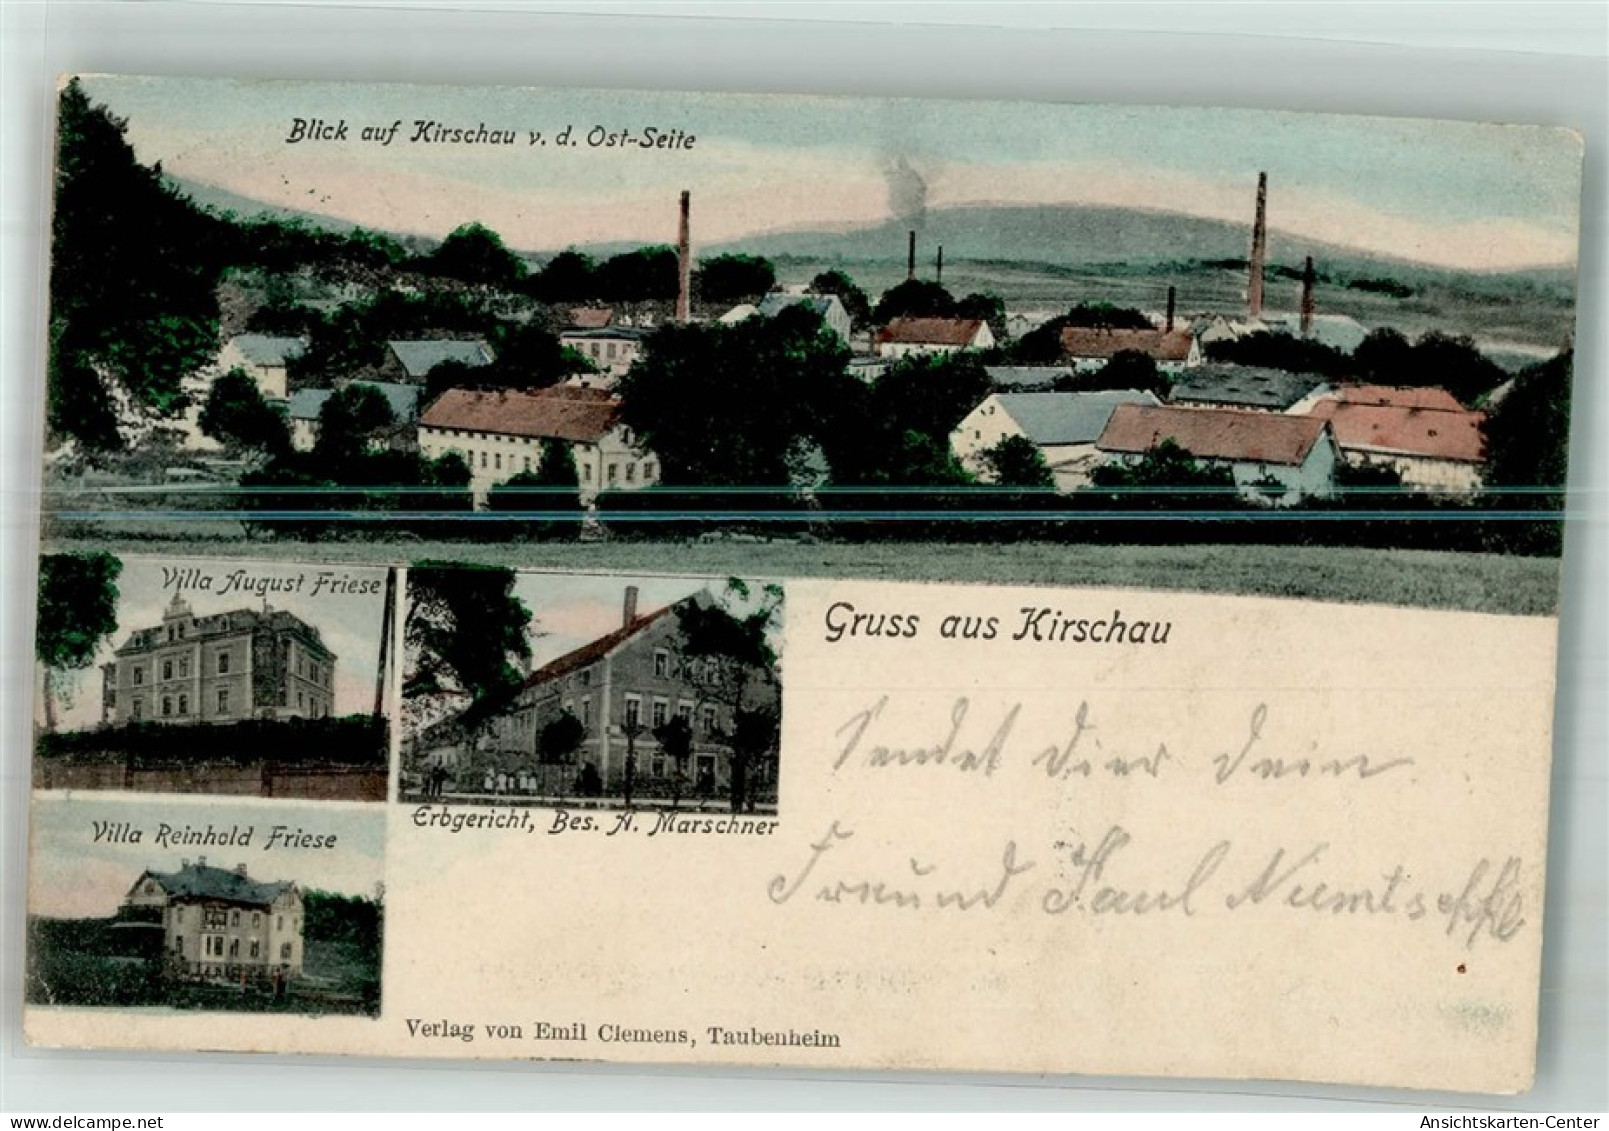 Blick auf Kirschau v. d. Ost-Seite
Villa August Friese
Gruss aus Kirschau
Sendet dier dein
Villa Reinhold Friese
Erbgericht, Bes. A. Marschner
Freund Paul
Verlag von Emil Clemens, Taubenheim
Ansichtskarten-Center